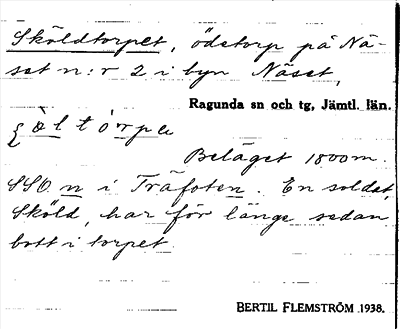 Sköldtorpet, ödetorp på Nä-
set n:r 2 i byn Näset,
Ragunda sn och tg, Jämtl. län.
Beläget 1800 m.
SSO. n i Träfoten. En soldat,
Sköld, har för länge sedan
bott i torpet.
BERTIL FLEMSTRÖM 1938.